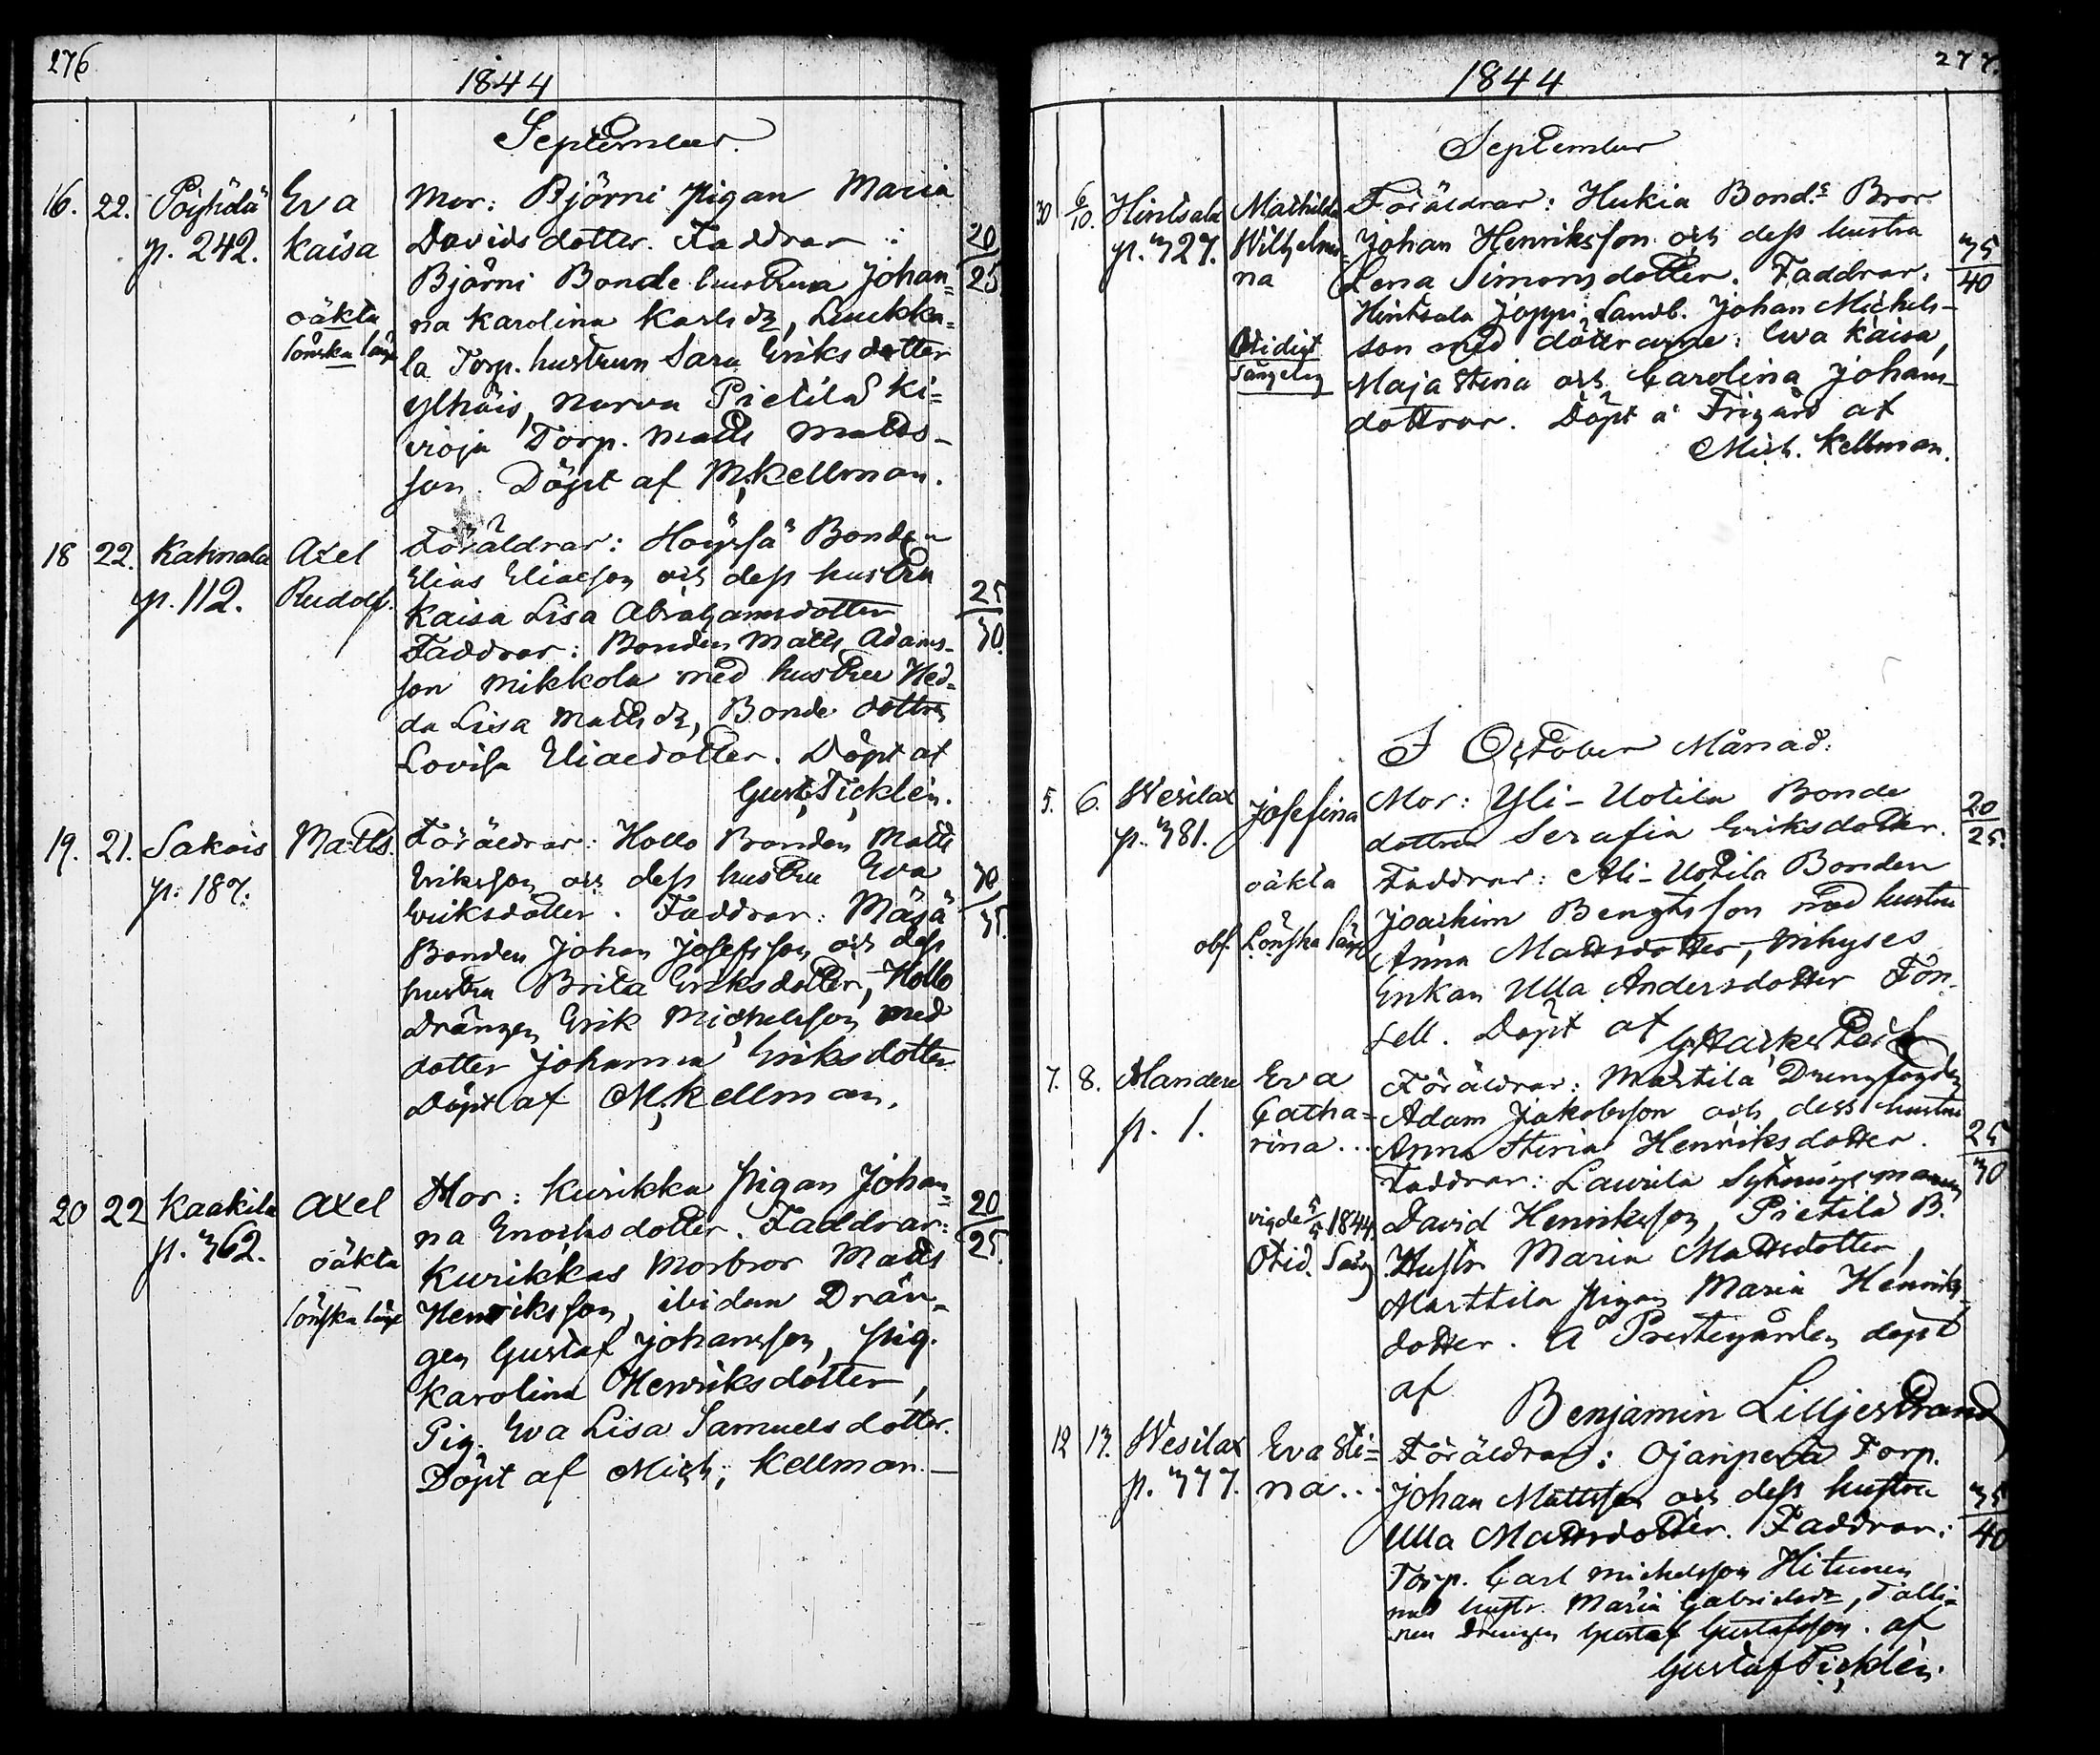 276
1844
September.
16. 22. Pöyhdä Eva Mor: Björni pigan Maria
p. 242. Kaisa Davidsdotter. Faddrar: 20
Björni Bonde hustrun Johan= 25
oäkta na Karolina Karlsdr, Luukka=
lönska läge la Torp. hustrun Sara Eriksdotter
Ylhäis, Norva Pietilä Ki=
vioja Torp. Matts Matts-
son. Döpt af M. Kellman.
18 22. Kahnala Axel Föräldrar: Höyssä Bonden
p. 112. Rudolf. Elias Eliasson och dess hustru 25
Kaisa Lisa Abrahamsdotter 30.
Faddrar: Bonden Matts Adams-
son Mikkola med hustru Hed=
da Lisa Mattsdr, Bonde dottren
Lovisa Eliaedotter. Döpt af
Gust. Ticklén.
19. 21. Sakois Matts. Föräldrar: Hollo Bonden Matts
p. 187. Eriksson och dess hustru Eva 30
Eriksdotter. Faddrar: Mäsä 35.
Bonden Johan Josefsson och dess
hustru Brita Eriksdotter, Hollo
Drängen Erik Michelsson med
dotter Johanna Eriksdotter
Döpt af M. Kellman.
20 22 Kaakila Axel Mor: Kurikka pigan Johan= 20
p. 362. na Enochsdotter. Faddrar: 25.
oäkta Kurikkas Morbror Matts
lönska läge Henriksson, ibidem Drän-
gen Gustaf Johansson, pig.
Karolina Henriksdotter,
Pig. Eva Lisa Samuelsdotter.
Döpt af Mich. Kellman.—
277.
1844
September
30 6/10. Hintsala Mathilda Föräldrar: Hukia Bonds Bror
p. 327. Wilhelmi- Johan Henriksson och dess hustru 35
na Lena Simonsdotter. Faddrar: 40
Hintsala Joppi Landb. Johan Michels-
Otidigt son med döttrarne: Eva Kaisa,
Sängelag Maja Stina och Carolina Johans-
dottrar. Döpt å Frigård af
Mich. Kellman.
I October Månad:
5. 6. Wesilax Josefina Mor: Yli-Uotila Bonde 20
p. 381. dottren Serafia Eriksdotter. 25.
oäkta Faddrar: Ali-Uotila Bonden
Joachim Bengtsson med hustru
obf. Lönska läge Anna Mattsdotter, Inhyses
Enkan Ulla Andersdotter Fon-
sell. Döpt af
7. 8. Alander Eva Föräldrar: Martila Drengfogden
p. 1. Catha= Adam Jakobsson och dess hustru
rina... Anna Stina Henriksdotter. 25
Faddrar: Laurila Sytningsmannen 30
vigde 5/5 1844. David Henriksson, Pietilä B.
Otid. Säng Hustr. Maria Mattsdotter,
Marttila pigan Maria Henriks-
dotter. Å Prestegården döpt
af Benjamin Lilljestrand
12 13. Wesilax Eva Sti= Föräldrar: Ojanperä Torp.
p. 377. na... Johan Mattsson och dess hustru 35
Ulla Mattsdotter. Faddrar: 40
Torp. Carl Michelsson Hitunen
med hustr. Maria Gabrielsdr, Talli-
nen Drengen Gustaf Gustafsson. af
Gustaf Ticklén.